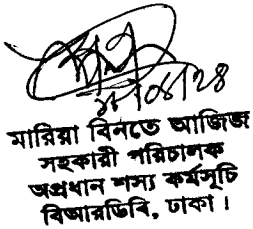 মারিয়া বিনতে আজিজ
সহকারী পরিচালক
অপ্রধান শস্য কর্মসূচি
বিআরডিবি, ঢাকা।